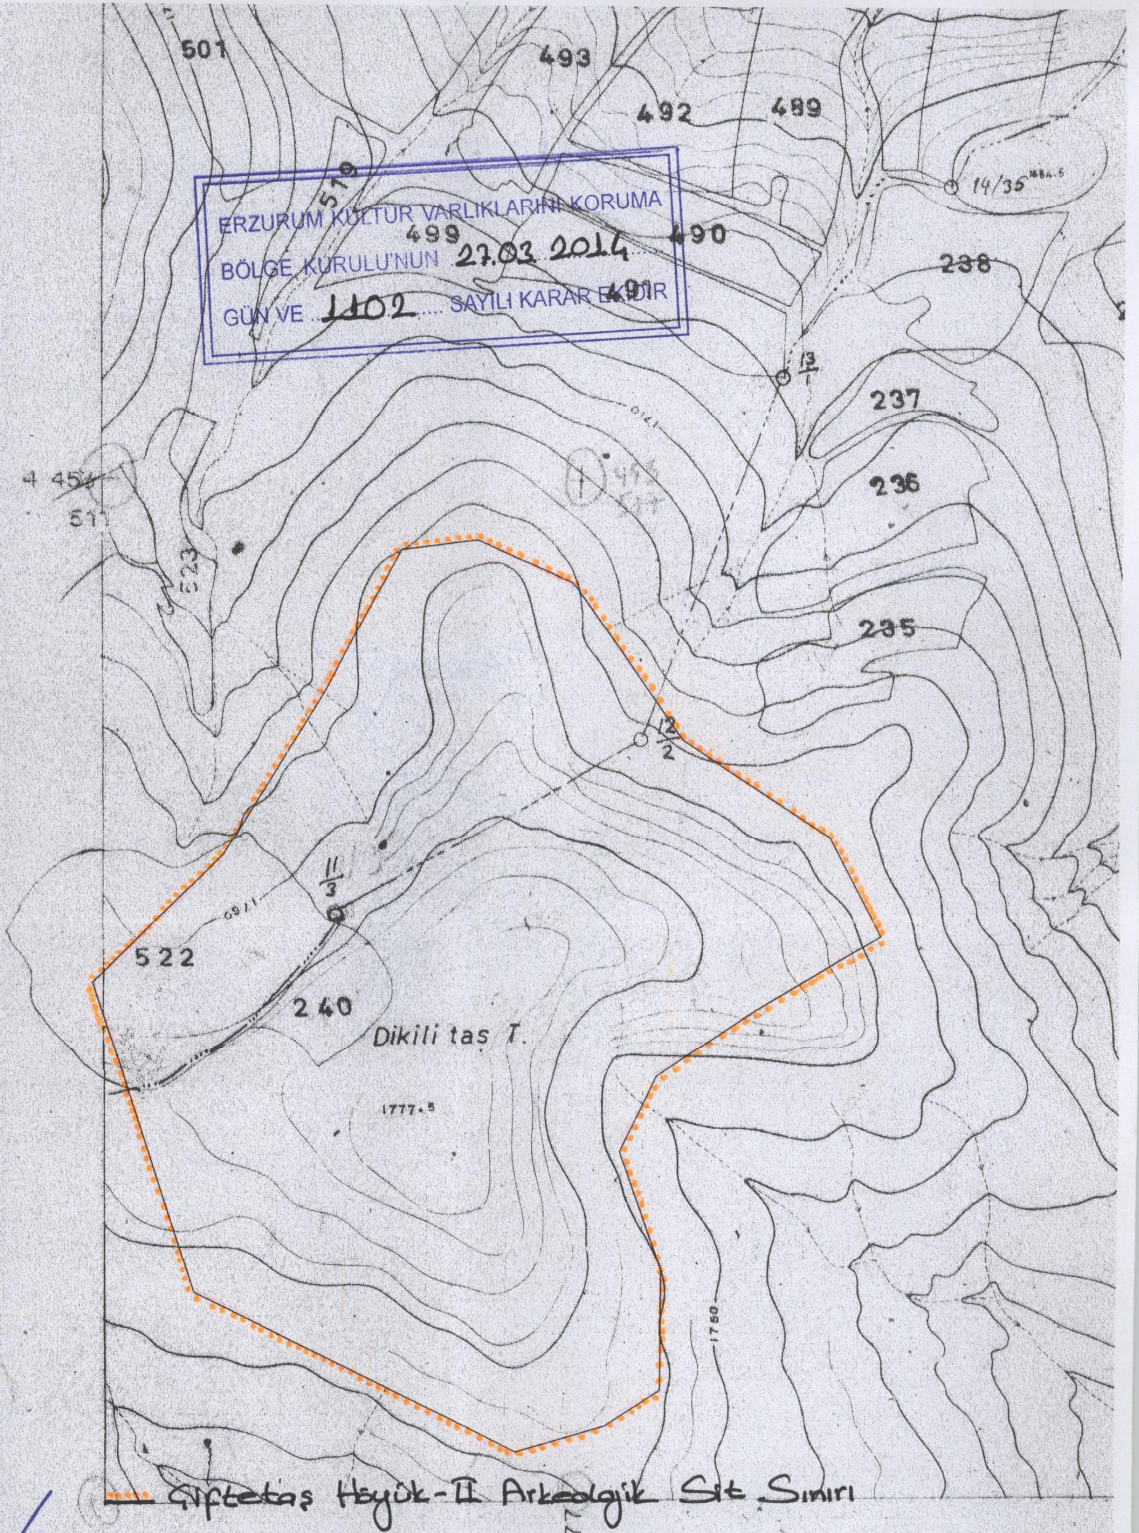 501
493
492
489
519
14/35 1684.5
ERZURUM KÜLTÜR VARLIKLARINI KORUMA
499
490
BÖLGE KURULU'NUN 27.03.2014
238
491
GÜN VE 1102 SAYILI KARAR EKİDİR
13
1
237
1710
236
511
523
235
12
2
11
3
1760
522
240
Dikili taş T.
1777.5
1750
Çiftetaş Höyük-II Arkeolojik Sit Sınırı